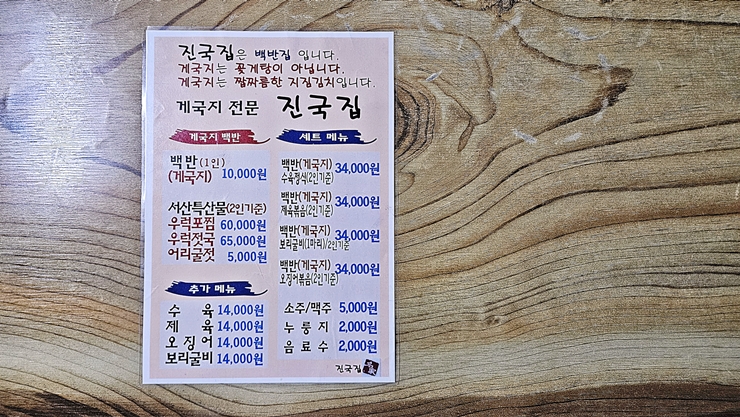 진국집은 백반집 입니다.
게국지는 꽃게탕이 아닙니다.
게국지는 짭짜름한 지짐김치입니다.
게국지 전문 진국집
게국지 백반
백반(1인)
(게국지) 10,000원
서산특산물(2인기준)
우럭포찜 60,000원
우럭젓국 65,000원
어리굴젓 5,000원
추가 메뉴
수육 14,000원
제육 14,000원
오징어 14,000원
보리굴비 14,000원
세트 메뉴
백반(게국지) 34,000원
수육정식(2인기준)
백반(게국지) 34,000원
제육볶음(2인기준)
백반(게국지) 34,000원
보리굴비(1마리)/2인기준
백반(게국지) 34,000원
오징어볶음(2인기준)
소주/맥주 5,000원
누룽지 2,000원
음료수 2,000원
진국집